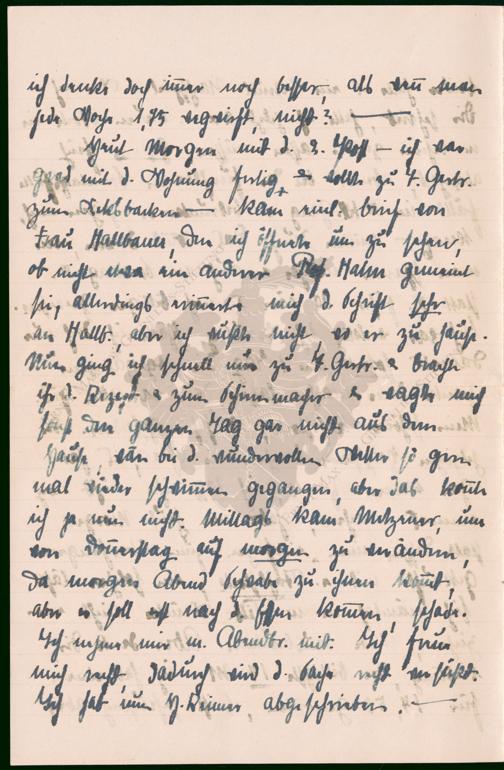 ich denke doch immer noch besser, als wenn man
jede Woche 1,75 nicht? —
Heut Morgen mit d. 2. Post — ich war
grad mit d. Wohnung fertig & wollte zu F. Gertr.
zum Keksbacken — kam ein brief von
Frau Hallbauer, den ich öffnete um zu sehen,
ob nicht etwa ein anderer Prof. Hahn gemeint
sei, allerdings erinnerte mich d. Schrift sehr
an Hallb. aber ich wüßte nicht, wo er zu hause.
Nun ging ich schnell nur zu F. Gertr. & brachte
ihr d. Rezept & zum Schuhmacher & wagte mich
sonst den ganzen Tag gar nicht aus dem
Hause, wär bei d. wundervollen Wetter so gern
mal wieder schwimmen gegangen, aber das konnte
ich ja nun nicht. Mittags kam Metzener, um
von Donnerstag auf morgen zu verändern,
da morgen Abend Schwabe zu ihnen kommt,
aber er soll erst nach d. Essen kommen, schade.
Ich nehme mir m. Abendbr. mit. Ich freue
mich recht, dadurch wird d. Sache recht versüßt.
Ich hab nun abgeschrieben. —